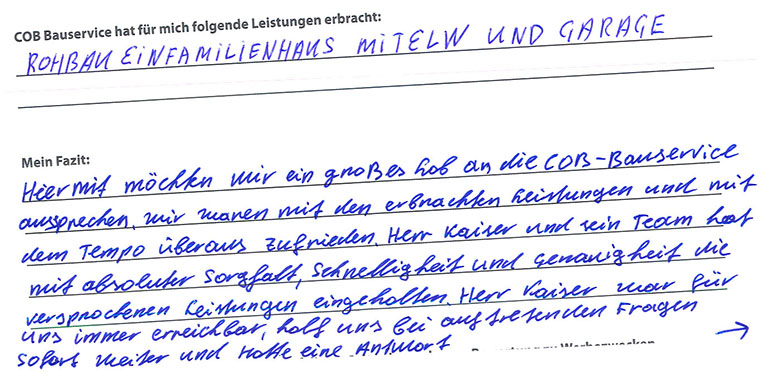 COB Bauservice hat für mich folgende Leistungen erbracht:
ROHBAU EINFAMILIENHAUS MIT ELW UND GARAGE
Mein Fazit:
Hiermit möchten wir ein großes Lob an die COB-Bauservice
aussprechen, wir waren mit den erbrachten Leistungen und mit
dem Tempo überaus zufrieden. Herr Kaiser und sein Team hat
mit absoluter Sorgfalt, Schnelligkeit und Genauigkeit die
versprochenen Leistungen eingehalten. Herr Kaiser war für
uns immer erreichbar, half uns bei auftretenden Fragen
sofort weiter und hatte eine Antwort →